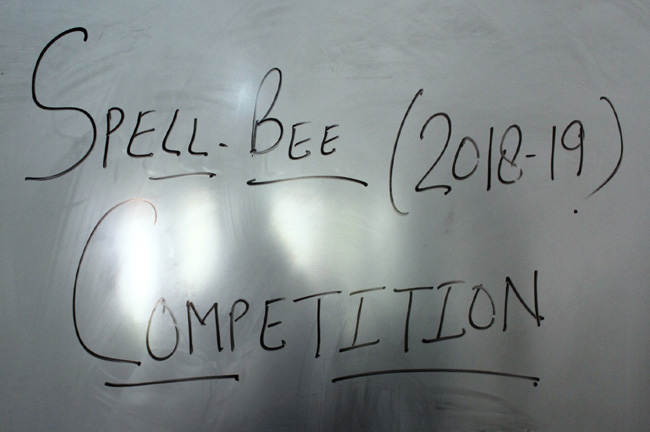 SPELL-BEE (2018-19)
COMPETITION